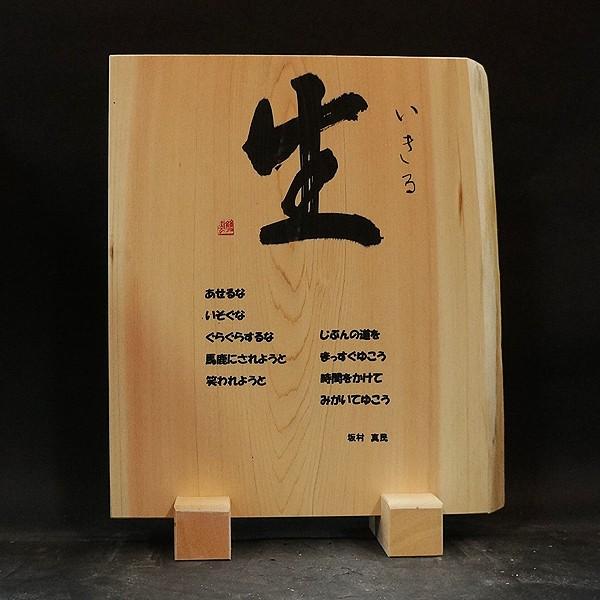 生
いきる
あせるな
いそぐな
ぐらぐらするな
馬鹿にされようと
笑われようと
じぶんの道を
まっすぐゆこう
時間をかけて
みがいてゆこう
坂村 真民